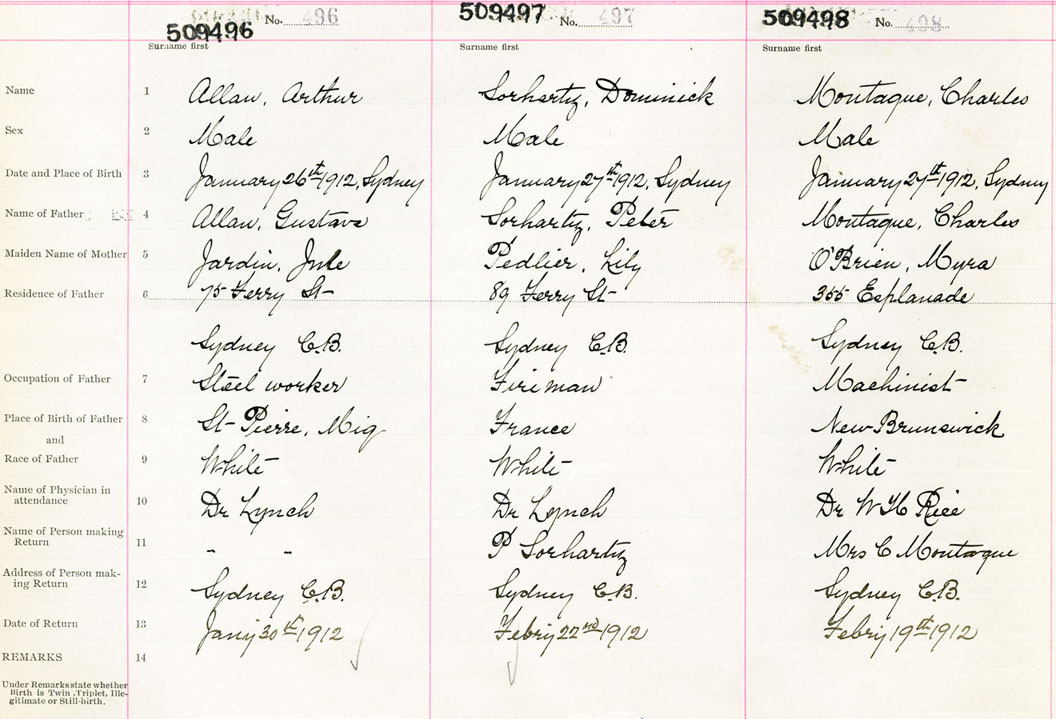 509496 No. 496
509497 No. 497
509498 No. 498
Surname first Surname first Surname first
Name 1 Allan, Arthur Sorhartz, Dominick Montague, Charles
Sex 2 Male Male Male
Date and Place of Birth 3 January 26th 1912, Sydney January 27th 1912, Sydney January 27th 1912, Sydney
Name of Father 4 Allan, Gustave Sorhartz, Peter Montague, Charles
Maiden Name of Mother 5 Jardin, Jule Pedlier, Lily O'Brien, Myra
Residence of Father 6 75 Ferry St 89 Ferry St 355 Esplanade
Sydney C.B. Sydney C.B. Sydney C.B.
Occupation of Father 7 Steel worker Fireman Machinist
Place of Birth of Father 8 St Pierre, Miq France New Brunswick
and
Race of Father 9 White White White
Name of Physician in
attendance 10 Dr Lynch Dr Lynch Dr W H Rice
Name of Person making
Return 11 " " P Sorhartz Mrs C Montague
Address of Person mak-
ing Return 12 Sydney C.B. Sydney C.B. Sydney C.B.
Date of Return 13 Jany 30th 1912 Febry 22nd 1912 Febry 19th 1912
REMARKS 14
Under Remarks state whether
Birth is Twin, Triplet, Ille-
gitimate or Still-birth.